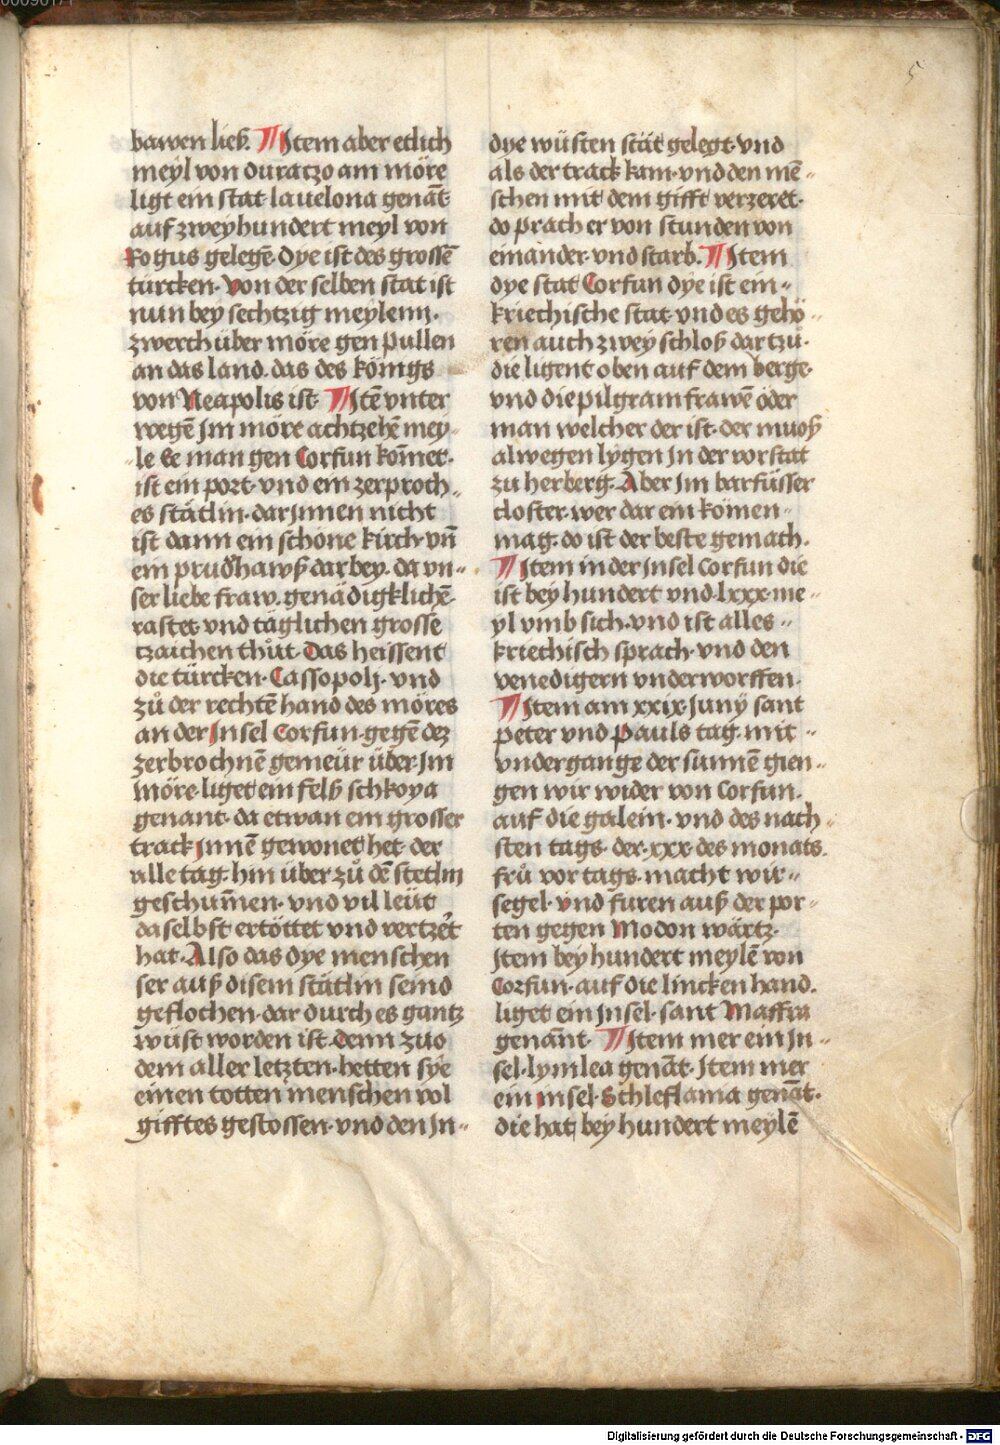 5
bawen ließ. Item aber etlich
meyl von duratzo am möre
ligt ein stat lauelona genāt
auf zweyhundert meyl von
Rogus gelegē. Dye ist des grossē
türcken. Von der selben stat ist
nun bey sechtzig meylenn.
zwerch über möre gen pullen
an das land. das des königs
von Neapolis ist. Itē vnter
wegē jm möre achtzehē mey-
le Ee man gen Corfun kom̄et.
ist ein port. vnd ein zerproch-
es stätlin. darjnnen nicht
ist dann ein schöne kirch vn̄
ein prud'hawß dar bey. da vn-
ser liebe fraw. genädigklichē.
rastet vnd täglichen grosse
tzaichen thůt. Das heissent
die türcken. Cassopolj. vnd
zů der rechtē hand des möres
an der Insel Corfun. gegē dez
zerbrochnē gemeür über. jm
möre. liget ein felß schkoya
genant. da etwan ein grosser
track jnnē gewonet het. der
alle tag. hin über zů dē stetlin
geschum̄en. vnd vil leüt
daselbst ertöttet vnd vertzert
hat. Also das dye menschen
ser auß disem stätlin seind
geflochen. dar durch es gantz
wüst worden ist. denn zuo
dem aller letzten. hetten sye
einen totten menschen vol
gifftes gestossen. vnd den jn-
dye wüsten stät gelegt. vnd
als der track kam. vnd den mē-
schen mit dem gifft verzeret.
do prach er von stunden von
einander. vnd starb. Item
dye stat Corfun dye ist ein-
kriechische stat. vnd es gehö-
ren auch zwey schloß dar tzů.
die ligent oben auf dem berge.
vnd die pilgram frawē oder
man welcher der ist. der muoß
alwegen lygen jn der vorstat
zu herberg. Aber jm barfüsser
closter. wer dar ein kömen-
mag. do ist der beste gemach.
Item in der jnsel Corfun die
ist bey hundert vnd. lxxx. me-
yl vmb sich. vnd ist alles-
kriechisch sprach. vnd den
venedigern vnderworffen.
Item am xxix. Juny sant
peter vnd pauls tag. mit-
vndergange der sunnē gien-
gen wir wider von Corfun.
auf die galein. vnd des nach-
sten tags. der. xxx. des monats.
frů vor tags. macht wir-
segel. vnd furen auß der por-
ten gegen Modon wärtz.
Item bey hundert meylē von
Corfun. auf die lincken hand.
liget ein jnsel. sant Maffra
genannt. Item mer ein jn-
sel. lymlea genāt. Item mer
ein insel. Schleflama genāt.
die hat bey hundert meylē
Digitalisierung gefördert durch die Deutsche Forschungsgemeinschaft - DFG